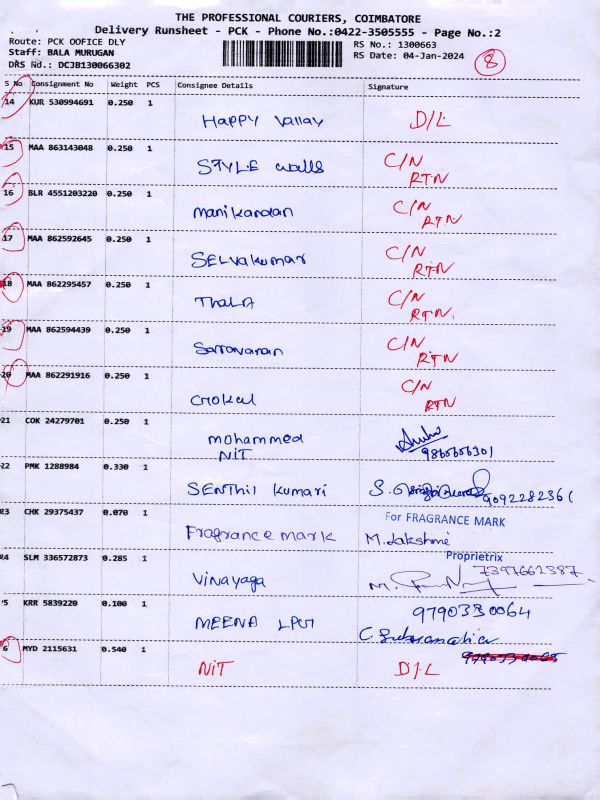 THE PROFESSIONAL COURIERS, COIMBATORE
Delivery Runsheet - PCK - Phone No.:0422-3505555 - Page No.:2
Route: PCK OOFICE DLY
RS No.: 1300663
Staff: BALA MURUGAN
RS Date: 04-Jan-2024
DRS No.: DCJB130066302
8
S No Consignment No Weight PCS Consignee Details Signature
14 KUR 530994691 0.250 1
Happy Vallay D/L
15 MAA 863143048 0.250 1
STYLE walls C/N RTN
16 BLR 4551203220 0.250 1
Manikandan C/N RTN
17 MAA 862592645 0.250 1
SELVakumar C/N RTN
18 MAA 862295457 0.250 1
ThaLA C/N RTN.
19 MAA 862594439 0.250 1
Sarravanan C/N RTN
20 MAA 862291916 0.250 1
Gokul C/N RTN
21 COK 24279701 0.250 1
mohammed
NIT
22 PMK 1288984 0.330 1
SENThil kumari
23 CHK 29375437 0.070 1
For FRAGRANCE MARK
Fragrance mark M. Lakshmi
Proprietrix
24 SLM 336572873 0.285 1
7397661387
Vinayaga
25 KRR 5839220 0.100 1
9790330064
MEENA LPG
C. Subramania
6 MYD 2115631 0.540 1
NIT D/L